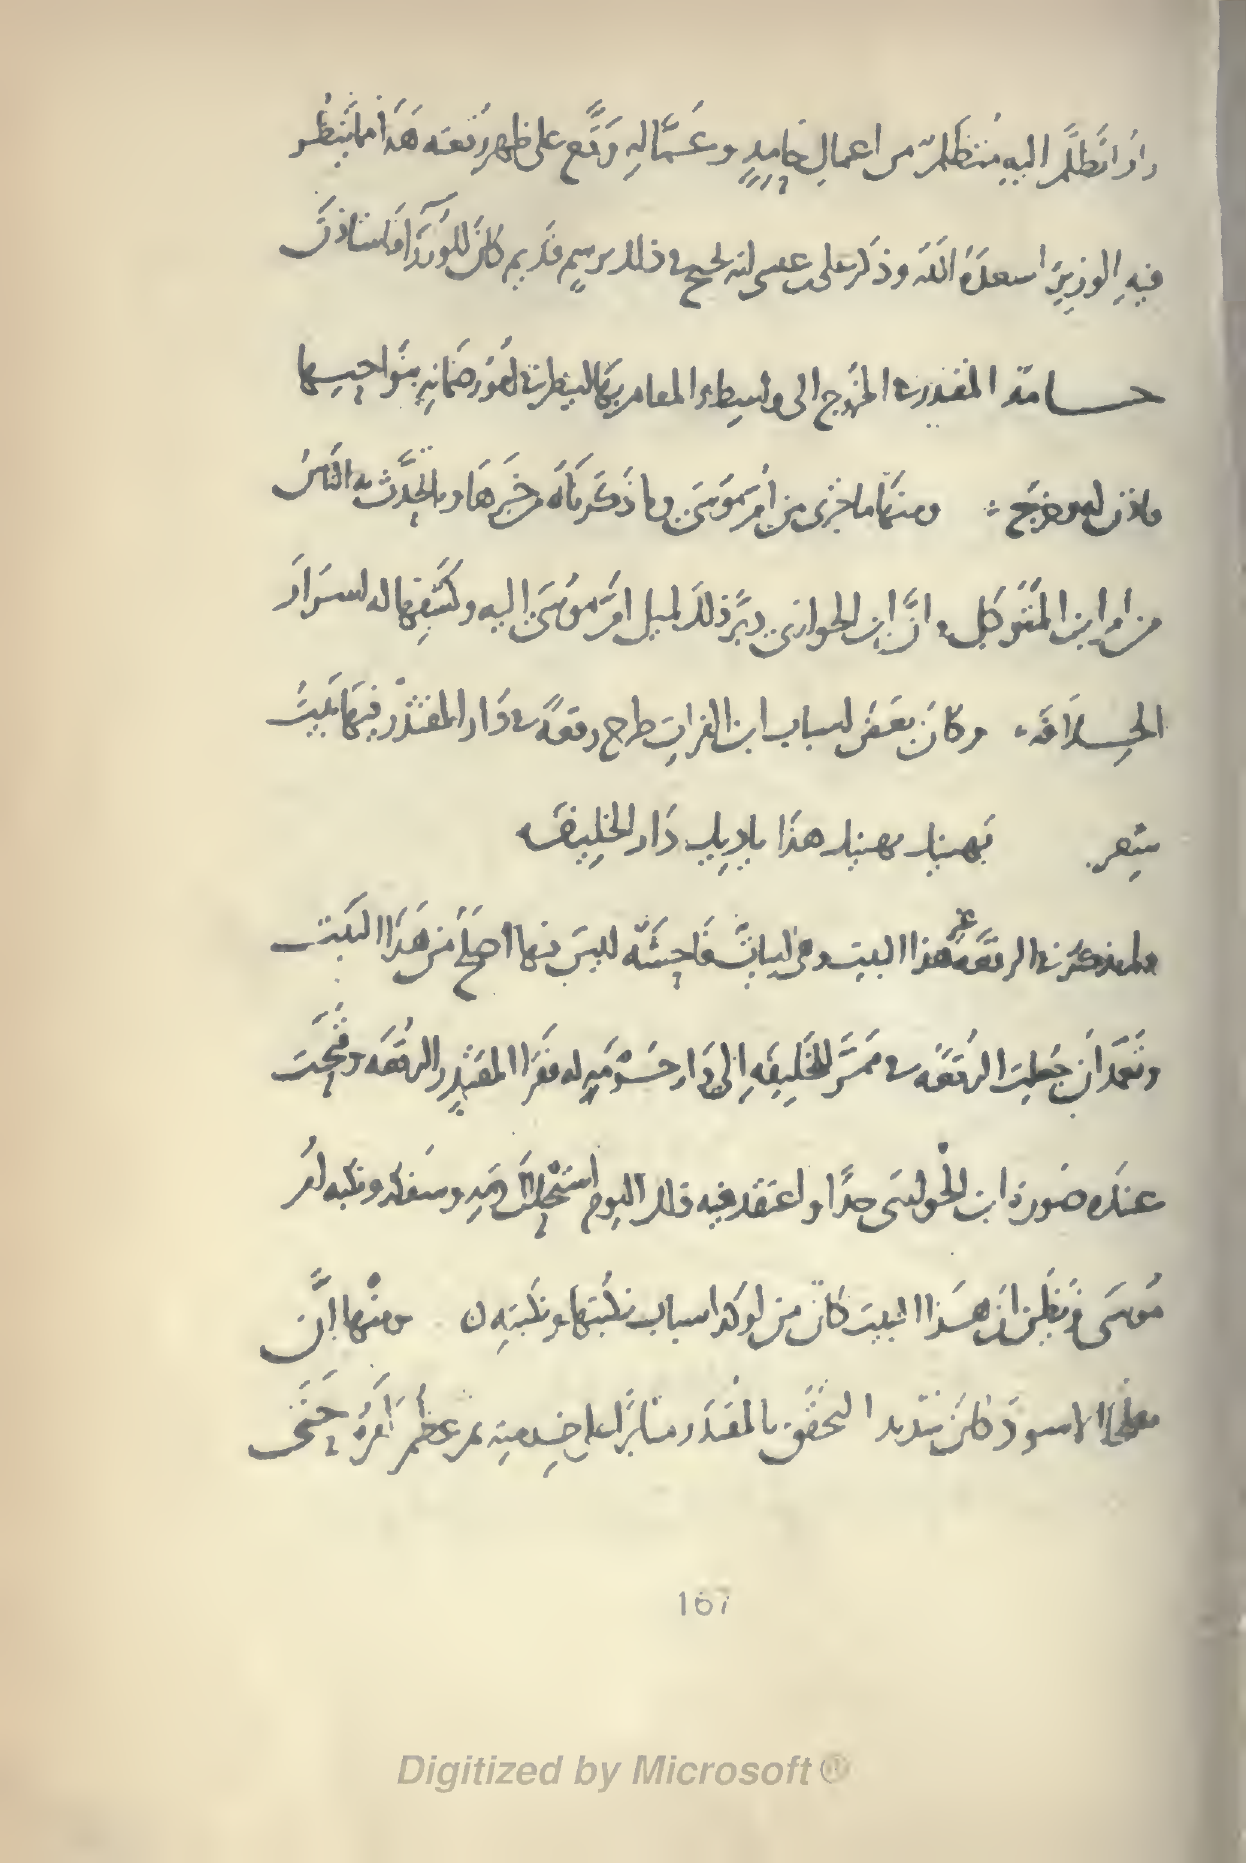 واذا تظلّم اليه متظلم من اعمال حامد وعمّاله وقّع على ظهر رقعته هذا مما ينظر
فيه الوزير اسعده الله وذكر على بن عيسى انه يحتج في ذلك برسم قديم كان للوزراء فاستاذن
حامد المقتدر في الخروج الى واسط والمقام بها لينظر في امور ضمانه بنواحيها
فاذن له وخرج ومنها ما جرى من امّ موسى وما ذكرناه من خبرها وما تحدّث به الناس
من امر ابن المتوكل وانّ ابن الحوارى دبّر ذلك لميل امّ موسى اليه وكشفها له اسرار
الخلافة وكان بعض اسباب ابن الفرات طرح رقعة في دار المقتدر فيها بيت
شعر يهنيك يهنيك هذا يا ديك دار الخليفه
ولم يذكر في الرقعة غير هذا البيت وهى ابيات فاحشة ليس فيها اصلح من هذا البيت
وتعمد ان جعلت الرقعه في ممرّ للخليفه الى دار حرمه له فقرا المقتدر الرقعه وقبحت
عنده صورة ابن الحوارى جدا واعتقد فيه ذلك اليوم استحلال دمه وسفكه ونكبه امّ
موسى ونظن ان هذا البيت كان من اوكد اسباب نكبتها ونكبته ومنها انّ
مفلحا الاسود كان شديد التحقق بالمقتدر مثابرا على خدمته ثم عظم امره حتى
167
Digitized by Microsoft ®